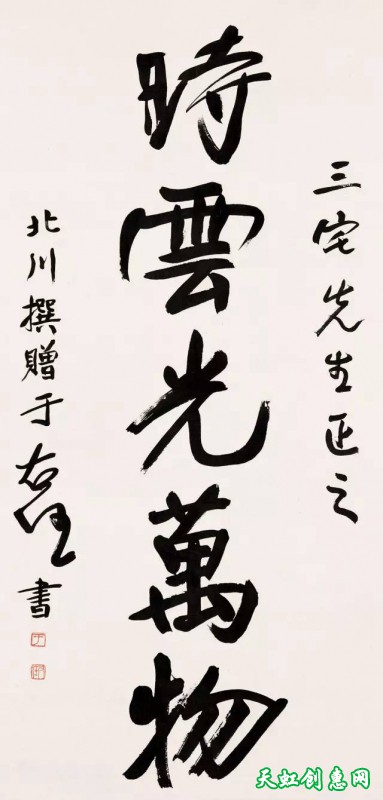 三宅先生正之
時雲光萬物
北川撰贈于右任書
天虹創惠网